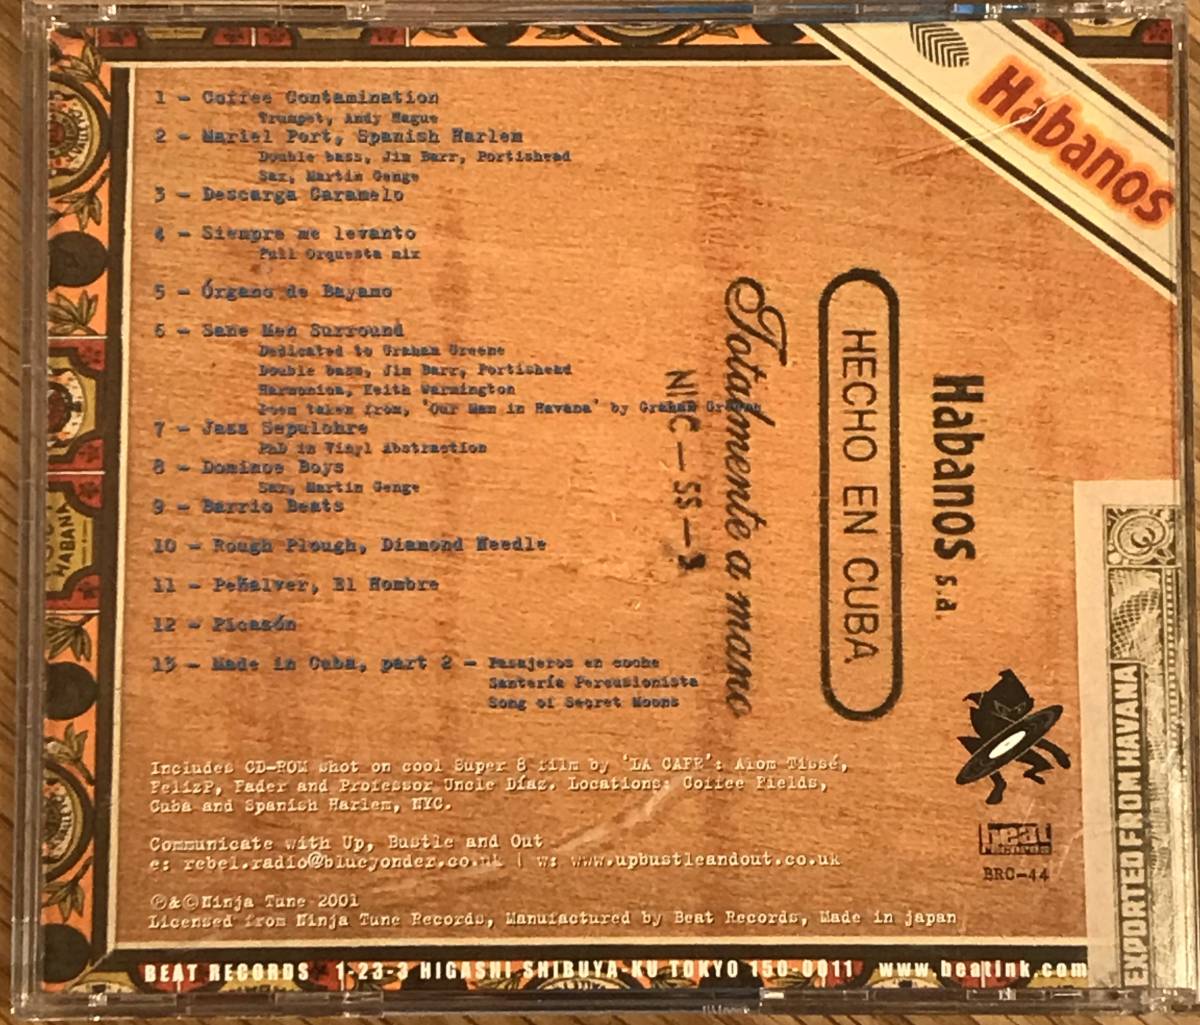 1 - Coffee Contamination
Trumpet, Andy Hague
2 - Mariel Port, Spanish Harlem
Double bass, Jim Barr, Portishead
Sax, Martin Genge
3 - Descarga Caramelo
4 - Siempre me levanto
Full Orquesta mix
5 - Órgano de Bayamo
6 - Sane Men Surround
Dedicated to Graham Greene
Double bass, Jim Barr, Portishead
Harmonica, Keith Warmington
Poem taken from, 'Our Man in Havana' by Graham Greene
7 - Jazz Sepulchre
PhD in Vinyl Abstraction
8 - Dominoe Boys
Sax, Martin Genge
9 - Barrio Beats
10 - Rough Plough, Diamond Needle
11 - Peñalver, El Hombre
12 - Picasón
13 - Made in Cuba, part 2 - Pasajeros en coche
Santería Percusionista
Song of Secret Moons
Includes CD-ROM shot on cool Super 8 film by 'LA CAFR': Aiom Tissé,
FelizP, Fader and Professor Uncle Díaz. Locations: Coffee Fields,
Cuba and Spanish Harlem, NYC.
Communicate with Up, Bustle and Out
e: rebel.radio@blueyonder.co.uk | w: www.upbustleandout.co.uk
℗&©Ninja Tune 2001
Licensed from Ninja Tune Records, Manufactured by Beat Records, Made in japan
BEAT RECORDS 1-23-3 HIGASHI SHIBUYA-KU TOKYO 150-0011 www.beatink.com
NIC-SS-3
Totalmente a mano
HECHO EN CUBA
Habanos s.a.
Habanos
beat
records
BRC-44
EXPORTED FROM HAVANA
HABANA